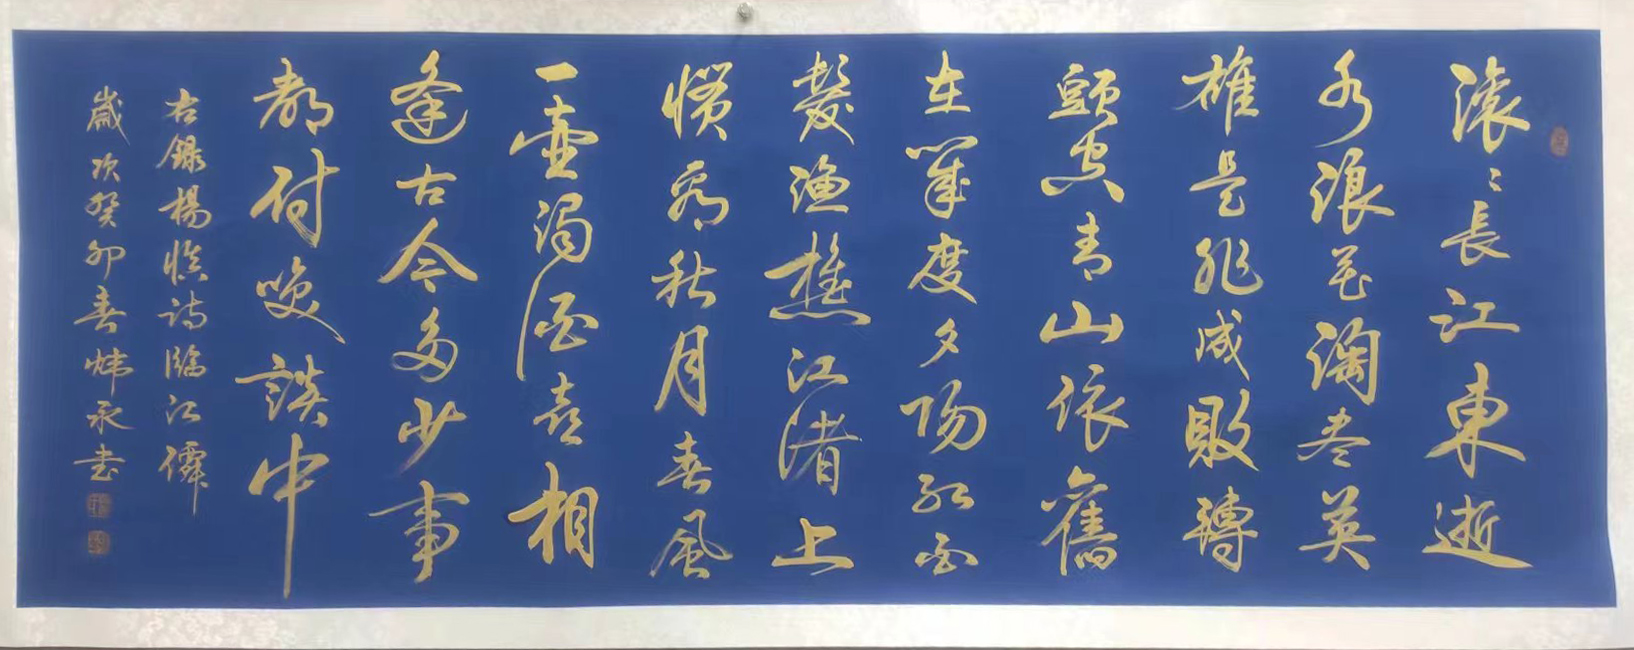 滚〻長江東逝
水浪花淘尽英
雄是非成敗轉
頭空青山依舊
在幾度夕陽红白
髮渔樵江渚上
惯看秋月春風
一壶濁酒喜相
逢古今多少事
都付笑談中
右錄楊慎詩臨江僊
歲次癸卯春炜承书